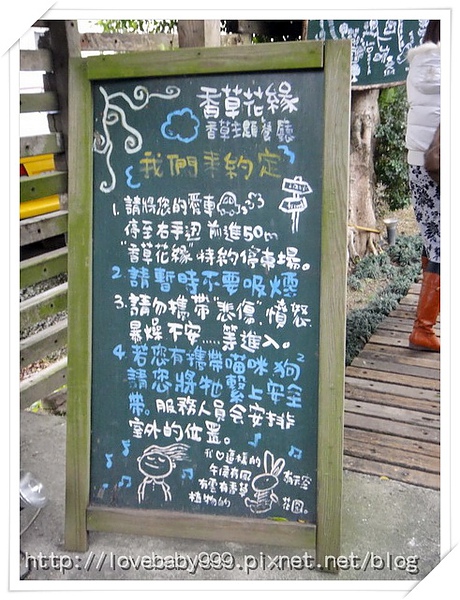 香草花緣
香草主題餐廳
我們來約定
1. 請將您的愛車
停至右手边 前進50m
"香草花緣"特約停車場。
2. 請暫時不要吸煙
3. 請勿攜帶"悲傷、憤怒、
暴燥、不安.....等進入。
4. 若您有攜帶喵咪、狗²
請您將牠繫上安全
帶。服務人員会安排
室外的位置。
我♡這樣的
午後有風
有雲有香草
植物的
花園。
http://lovebaby999.pixnet.net/blog